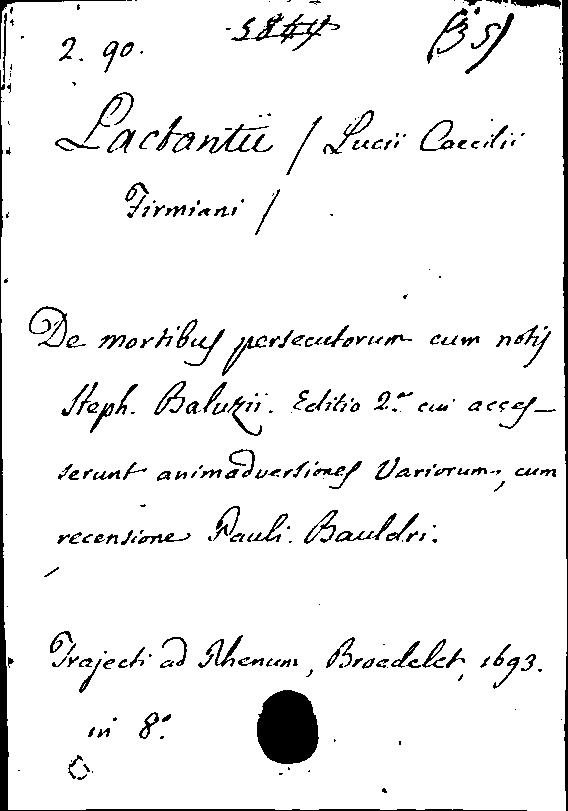 2. 90. 5844 (35)
Lactantii / Lucii Caecilii
Firmiani /
De mortibus persecutorum cum notis
Steph. Baluzii. Editio 2.ª cui acces-
serunt animadversiones Variorum, cum
recensione Pauli Bauldri.
Trajecti ad Rhenum, Broedelet, 1693.
in 8.º